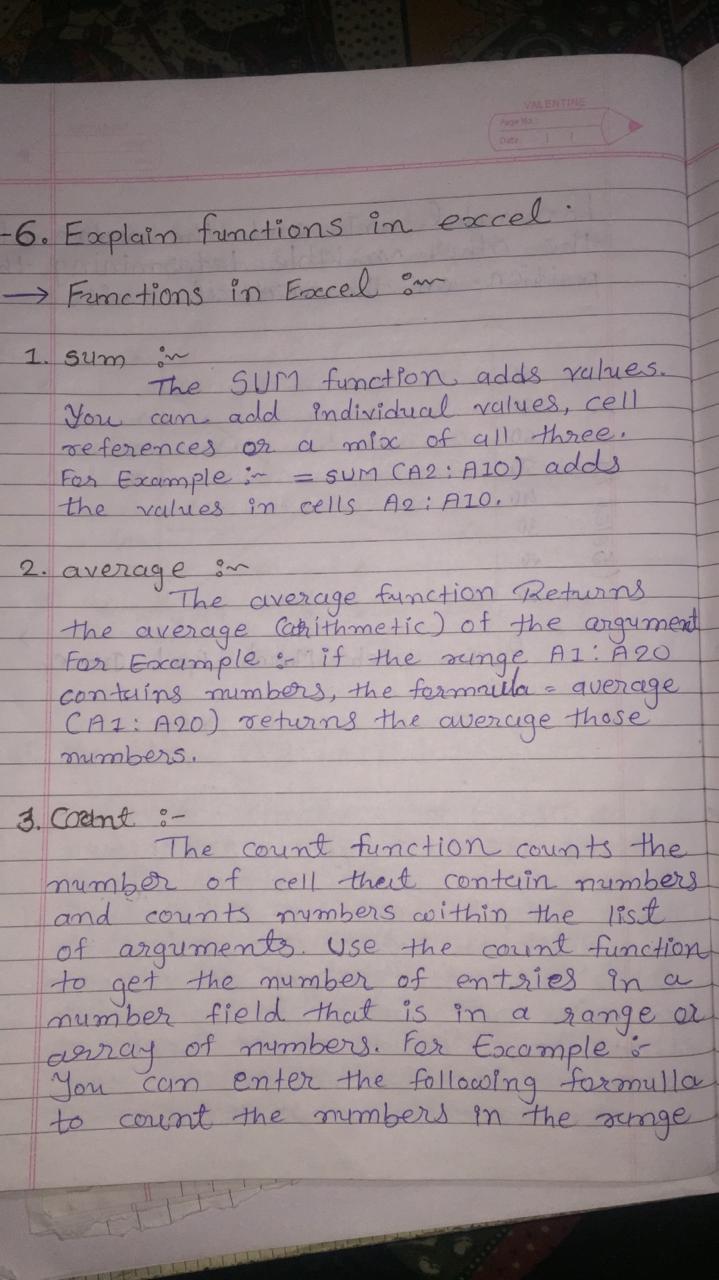 VALENTINE
Page No.:
Date: / /
-6. Explain functions in excel.
→ Functions in Excel :~
1. sum :~
The SUM function adds values.
You can add individual values, cell
references or a mix of all three.
For Example :~ = SUM (A2:A10) adds
the values in cells A2:A10.
2. average :~
The average function Returns
the average (arithmetic) of the argument
For Example :- if the range A1:A20
contains numbers, the formula = average
(A1:A20) returns the average those
numbers.
3. Count :-
The count function counts the
number of cell that contain numbers
and counts numbers within the list
of arguments. Use the count function
to get the number of entries in a
number field that is in a range or
array of numbers. For Example :-
You can enter the following formulla
to count the numbers in the range